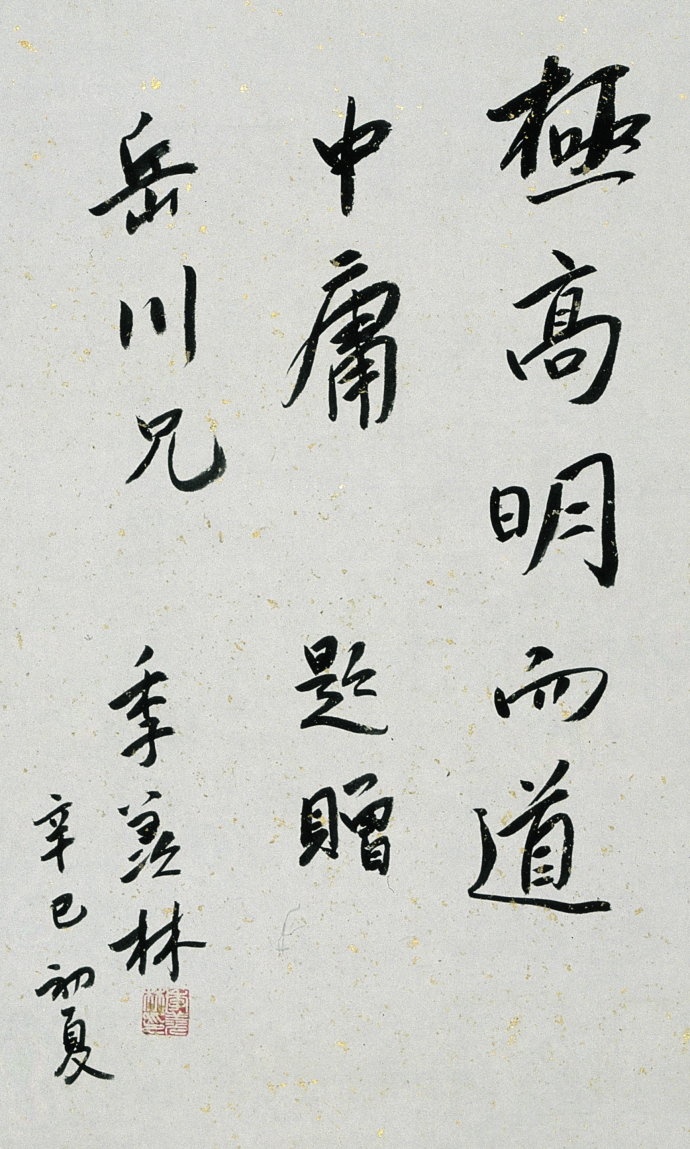 極高明而道
中庸 題贈
岳川兄 季羨林
辛巳初夏